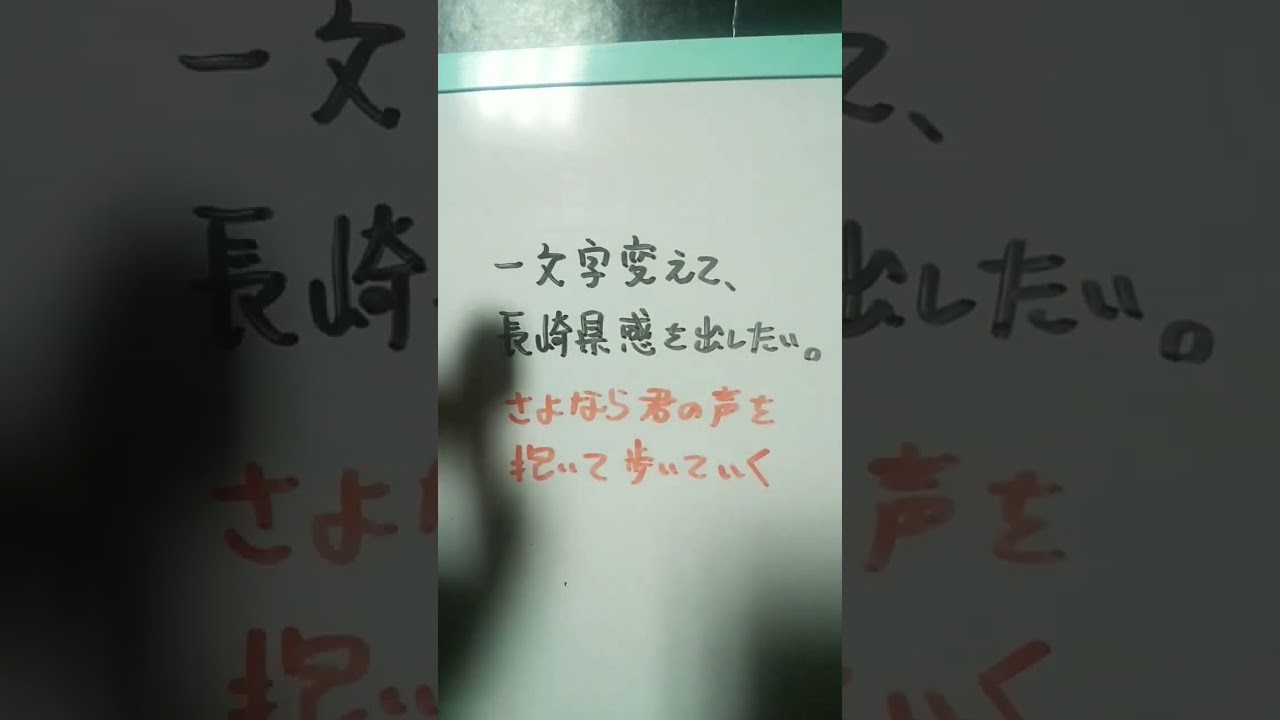 一文字変えて、
長崎県感を出したい。
さよなら君の声を
抱いて歩いていく